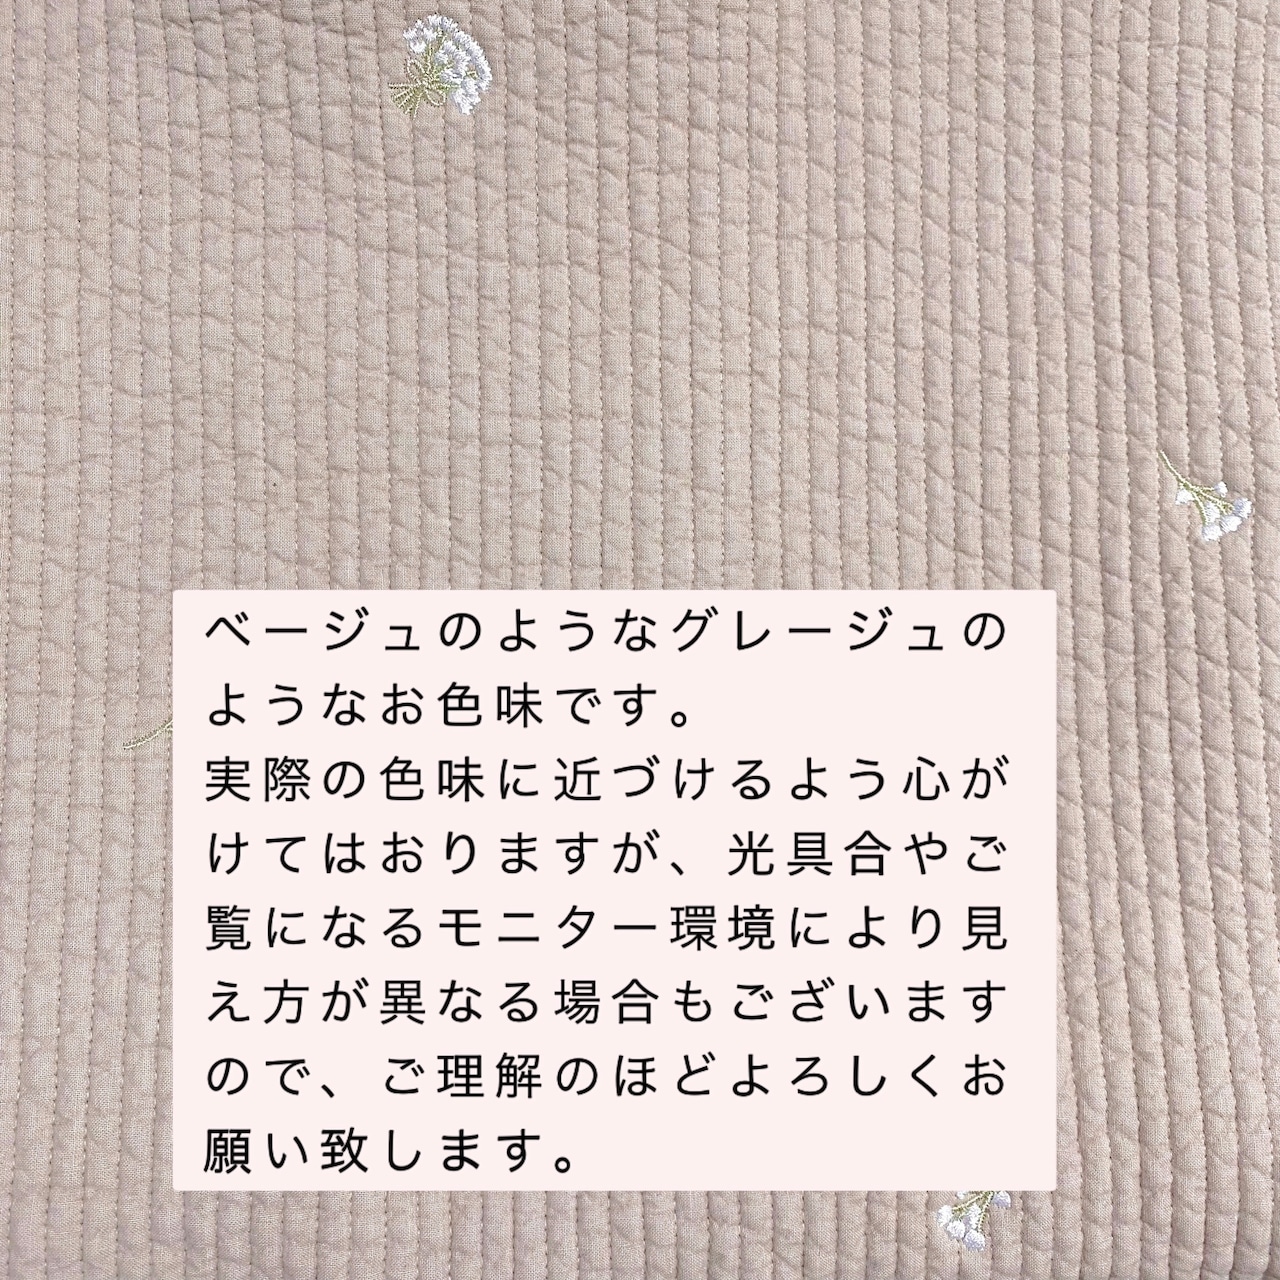 ベージュのようなグレージュの
ようなお色味です。
実際の色味に近づけるよう心が
けてはおりますが、光具合やご
覧になるモニター環境により見
え方が異なる場合もございます
ので、ご理解のほどよろしくお
願い致します。